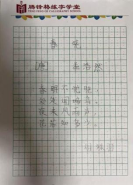 腾铨格练字学堂
春晓
唐 孟浩然
春眠不觉晓
处处闻啼鸟
夜来风雨声
花落知多少